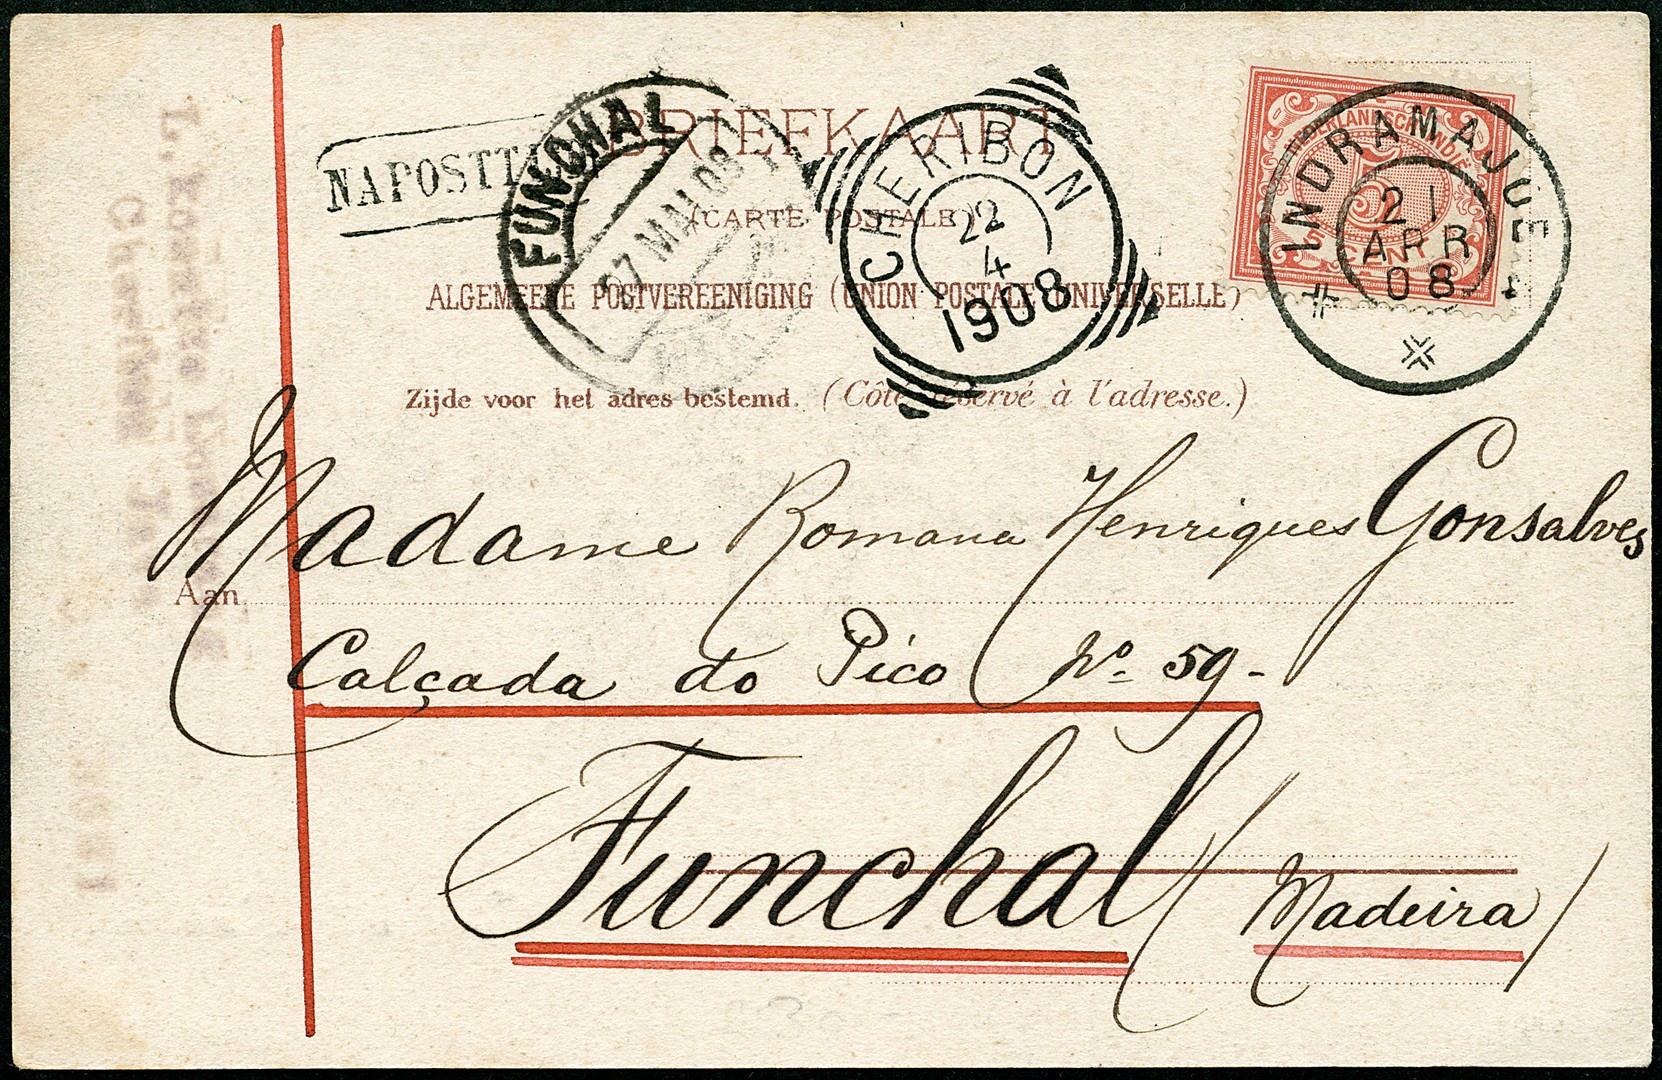 BRIEFKAART
(CARTE POSTALE)
ALGEMEENE POSTVEREENIGING (UNION POSTALE UNIVERSELLE)
Zijde voor het adres bestemd. (Côté réservé à l'adresse.)
NAPOSTT
FUNCHAL
27 MAI 08
CHERIBON
22
4
1908
NEDERLANDSCH-INDIË
5
5 CENT
INDRAMAJOE
21
APR
08
Madame Romana Henriques Gonsalves
Aan
Calçada do Pico Nº 59-
Funchal
(Madeira)